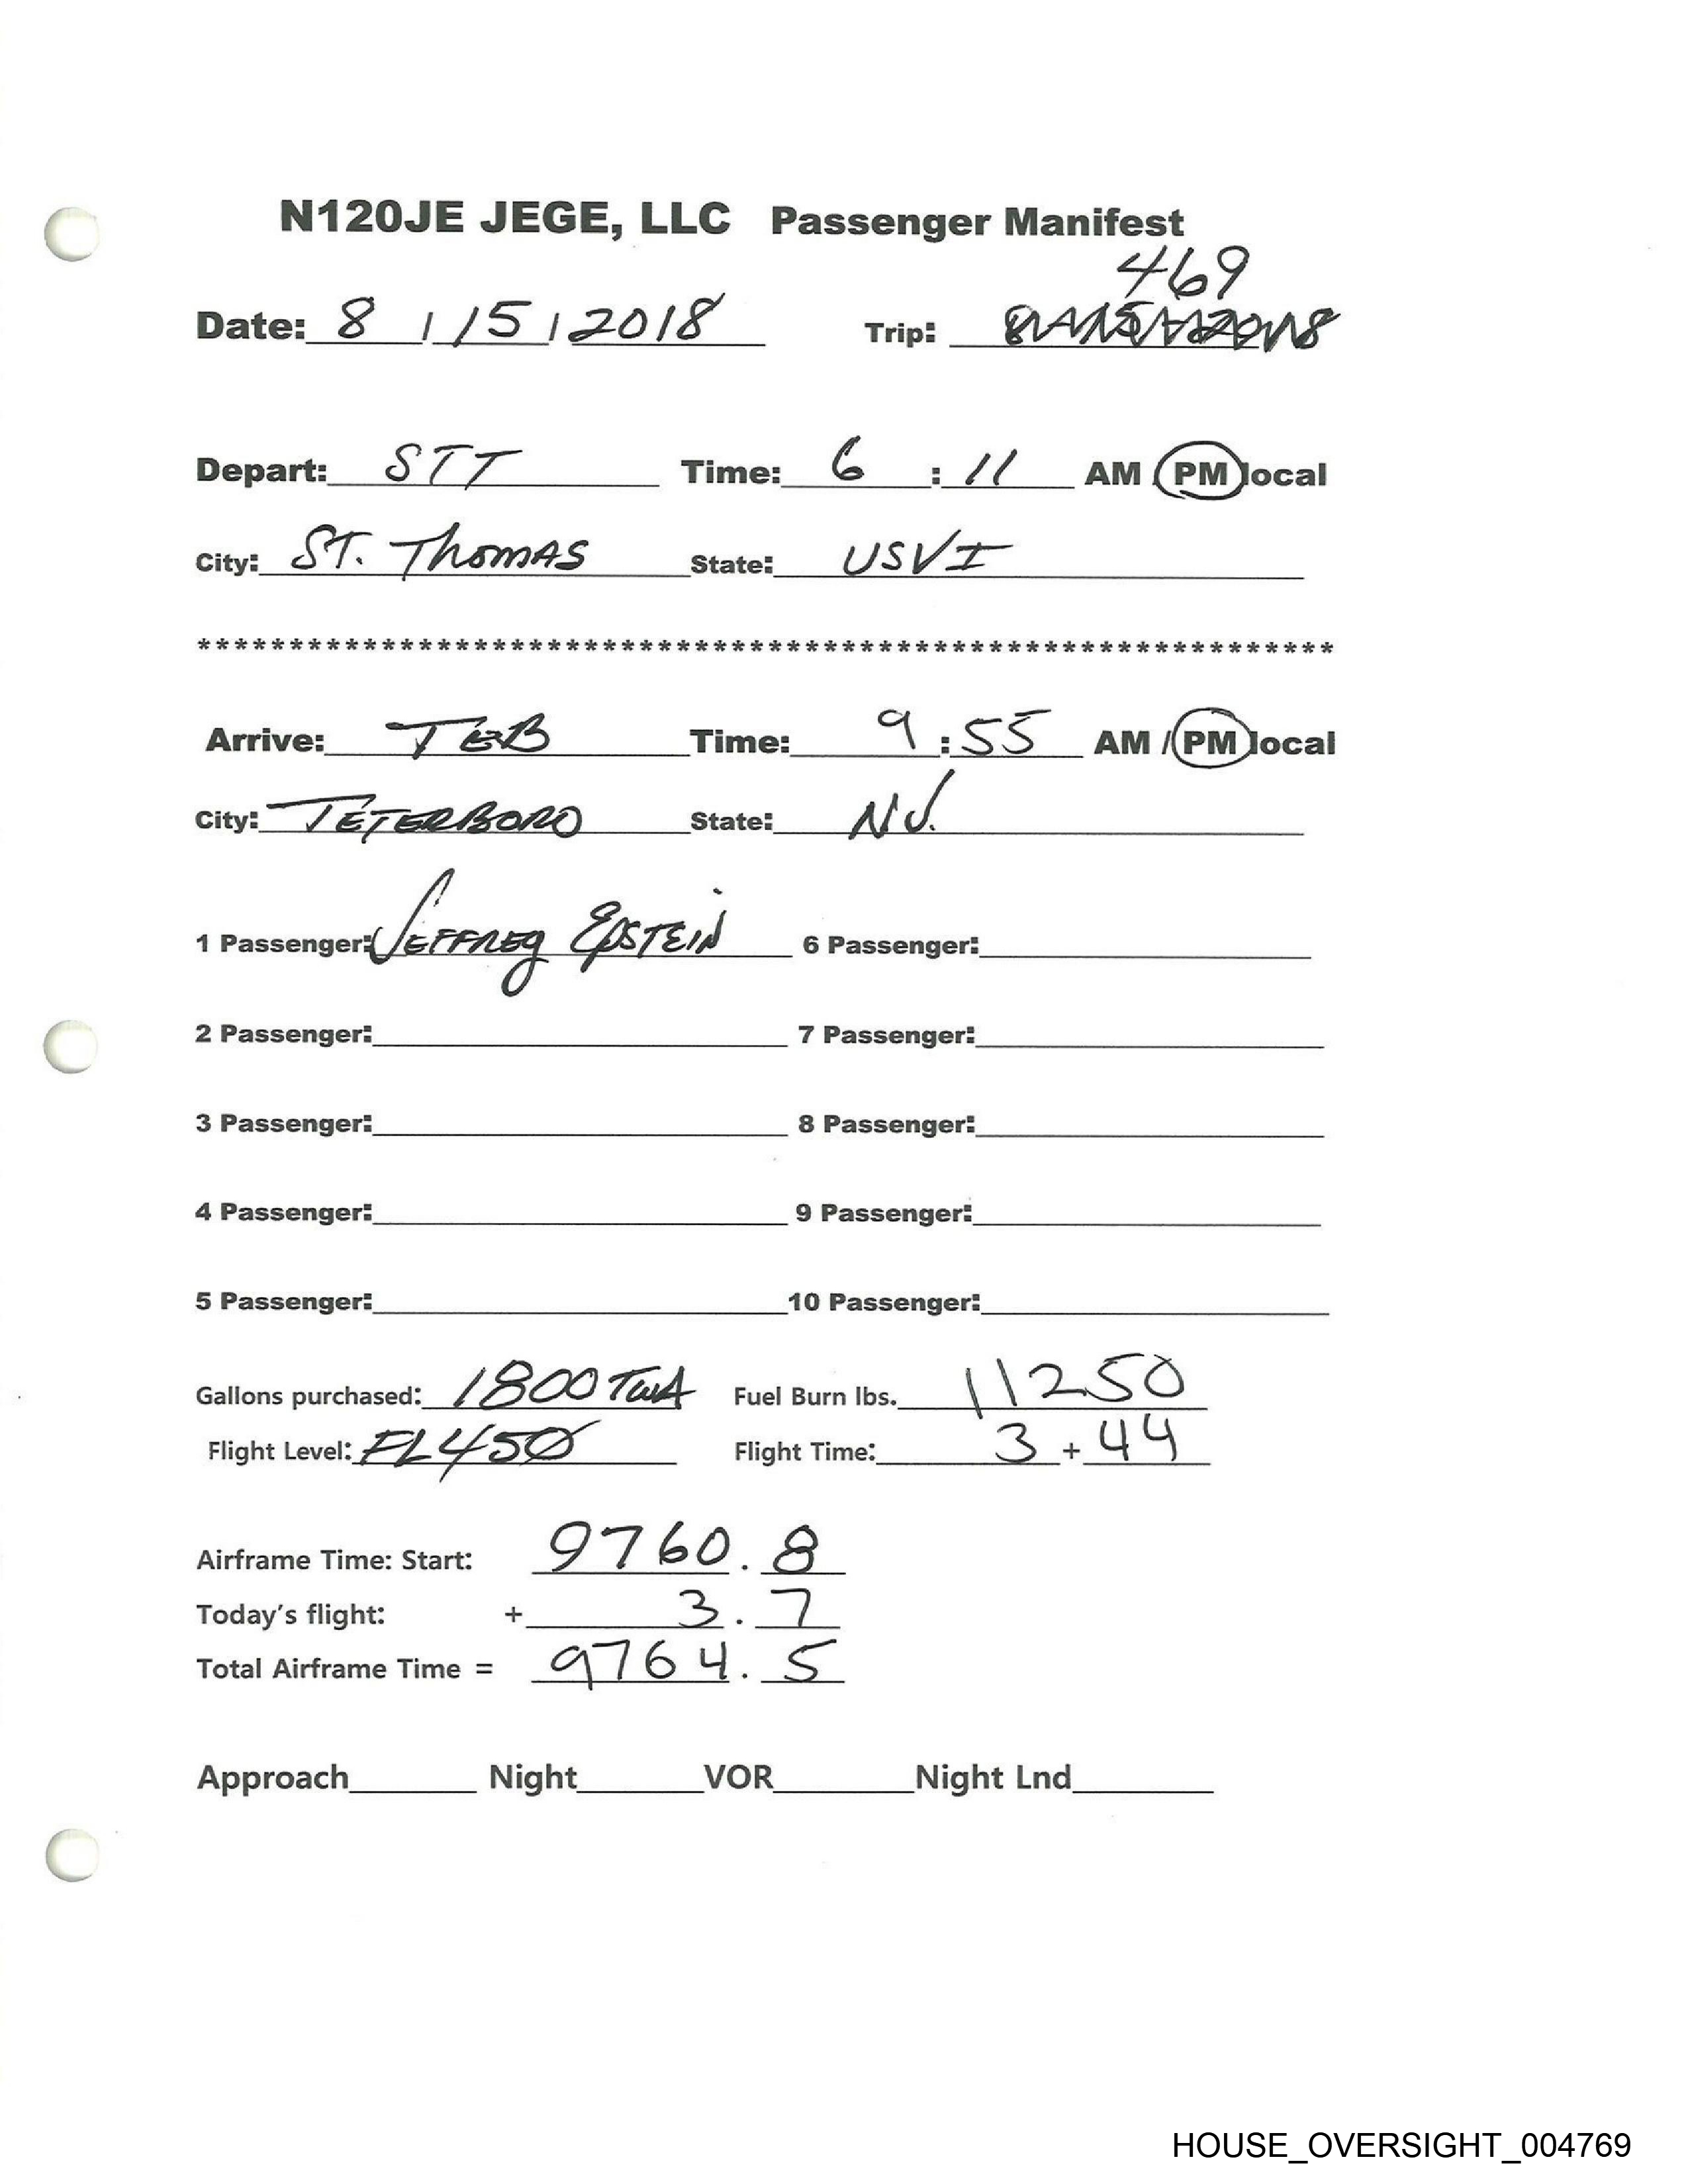 N120JE JEGE, LLC Passenger Manifest
469
Date: 8 / 15 / 2018 Trip:
Depart: STT Time: 6 : 11 AM / PM local
City: ST. THOMAS State: USVI
******************************************************************
Arrive: TEB Time: 9 : 55 AM / PM local
City: TETERBORO State: NJ.
1 Passenger: JEFFREY EPSTEIN 6 Passenger:
2 Passenger: 7 Passenger:
3 Passenger: 8 Passenger:
4 Passenger: 9 Passenger:
5 Passenger: 10 Passenger:
Gallons purchased: 1800 TWA Fuel Burn lbs. 11250
Flight Level: FL450 Flight Time: 3 + 44
Airframe Time: Start: 9760 . 8
Today's flight: + 3 . 7
Total Airframe Time = 9764 . 5
Approach Night VOR Night Lnd
HOUSE_OVERSIGHT_004769